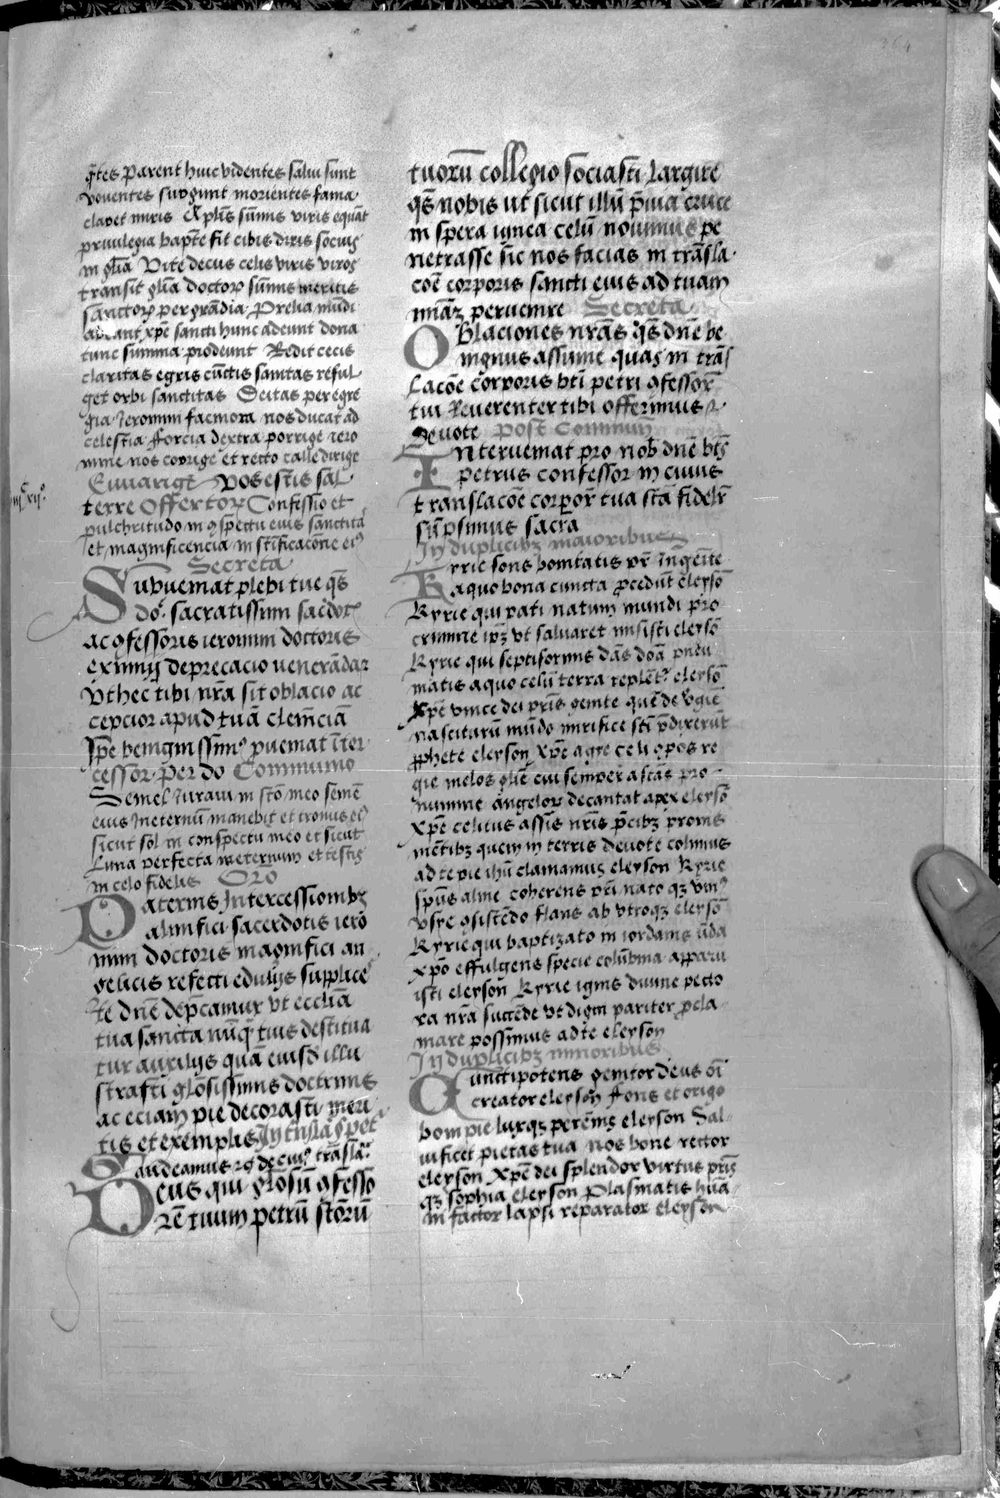 364
stes parent huic videntes salui sunt
voventes surgunt morientes fama
claret miris Aplis sumis viris equat
priuilegia bapte fit cibis diris socius
in glia Vite decus celis viris viros
transit glia doctor sumis meritis
sanctor per grandia Prelia mudi
xpe sancti hunc adeunt dona
tunc summa prodeunt Redit cecis
claritas egris cuctis sanitas reful
get orbi sanctitas Scitas per egre
gia Ieronimi facinora nos ducat ad
celestia Forcia dextra porrige iero
nime nos corrige et recto calle dirige
Euuangt Vos estis sal
terre Offertor Confessio et
pulchritudo in ɔspectu eius sanctita
et magnificencia in scificacone eiꝰ
Secreta
Subueniat plebi tue qs
do. sacratissimi sacdot
ac ɔfessoris ieronimi doctoris
eximij deprecacio veneradaz
Vt hec tibi nra sit oblacio ac
cepcior apud tua clemcia
Ipe benignissimꝰ pueniat iter
cessor. Per do Communio
Semel iuraui in sco meo seme
eius ineternu manebit et tronus eiꝰ
sicut sol in conspectu meo et sicut
luna perfecta ineternum et testis
in celo fidelis Oro
Paternis intercessionibꝫ
almifici sacerdotis iero
nimi doctoris magnifici an
gelicis refecti edulijs supplice
te dne depcamur vt ecclia
tua sancta nuqꝫ tuis destitua
tur auxilijs qua eiusd illu
strasti gloisissimis doctrinis
ac eciam pie decorasti meri
tis et exemplis. In trslac s pet
Gaudeamus rꝫ de cuiꝰ transla
Deus qui gliosu ɔfesso
re tuum petru scoru
tuoru collegio sociasti largire
qs nobis vt sicut illu p via cruce
in spera ignea celu nouimus pe
netrasse sic nos facias in trasla
coe corporis sancti eius ad tuam
miaꝫ peruenire Secreta
Oblaciones nras qs dne be
nignus assume quas in tras
lacoe corporis bti petri ɔfessor
tui reuerenter tibi offerimus
deuote Post Commun
Interueniat pro nob dne bts
petrus confessor in cuius
translacoe corpor tua sca fideler
supsimus sacra
In duplicibꝫ maioribus
Kyrie fons bonitatis pr ingeite
a quo bona cuncta procedut eleyso
Kyrie qui pati natum mundi pro
crimine ipꝫ vt saluaret misisti eleyso
Kyrie qui septiformis das doa pneu
matis a quo celu terra replet eleyso
Xpe vnice dei pris genite que de vgie
nascituru mudo mirifice sci pdixerut
pphete eleyson Xpe agye celi ɔpos re
gie melos glie cui semper astas pro
numine angelor decantat apex eleyso
Xpe celitus assis nris pcibꝫ pronis
metibꝫ quem in terris deuote colimus
ad te pie ihu clamamus eleyson Kyrie
spus alme coherens pri nato qꝫ vniꝰ
vsye ɔsistedo flans ab vtroqꝫ eleyso
Kyrie qui baptizato in iordanis uda
xpo effulgens specie columbina apparu
isti eleyson Kyrie ignis diuine pecto
ra nra succede vt digni pariter procla
mare possimus ad te eleyson
In duplicibꝫ minoribus
Cunctipotens genitor deus oi
creator eleyson Fons et origo
boni pie luxqꝫ perenis eleyson Sal
uificet pietas tua nos bone rector
eleyson Xpe dei splendor virtus pris
qꝫ sophia eleyson Plasmatis hua
ni factor lapsi reparator eleyson